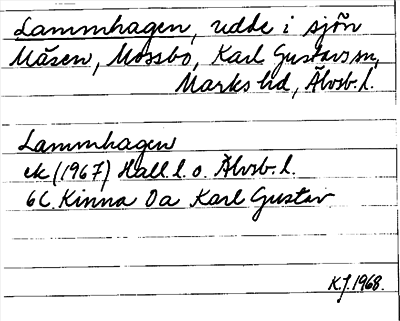 Lammhagen, udde i sjön
Måsen, Mossbo, Karl Gustavs sn,
Marks hd, Älvsb. l.
Lammhagen
ek (1967) Hall. l. o. Älvsb. l.
6C. Kinna 0a Karl Gustav
K.J. 1968.